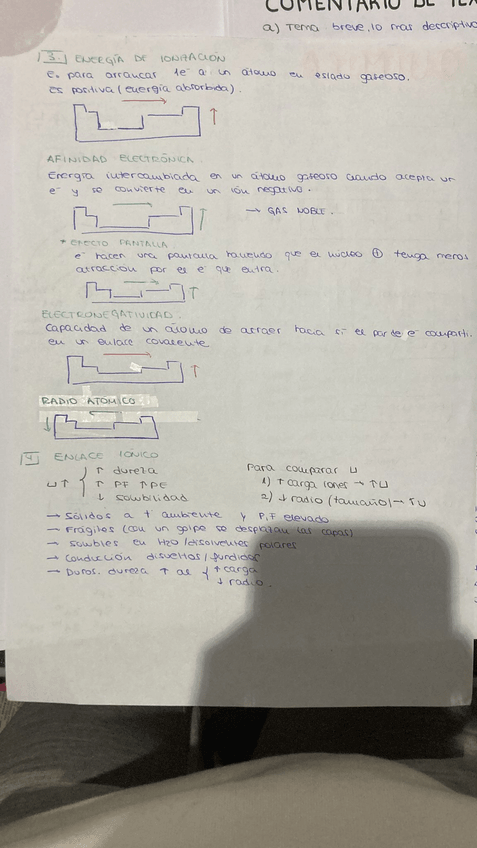 COMENTARIO DE TEX
a) Tema breve, lo más descriptivo
3. ENERGÍA DE IONIZACIÓN
E. para arrancar 1e⁻ a un átomo en estado gaseoso.
Es positiva (energía absorbida).
→
↑
AFINIDAD ELECTRÓNICA.
Energía intercambiada en un átomo gaseoso cuando acepta un
e⁻ y se convierte en un ión negativo.
→
↑
→ GAS NOBLE.
* EFECTO PANTALLA
e⁻ hacen una pantalla haciendo que el núcleo ⊕ tenga menos
atracción por el e⁻ que entra.
→
↑
ELECTRONEGATIVIDAD.
Capacidad de un átomo de atraer hacia sí el par de e⁻ comparti.
en un enlace covalente
→
↑
RADIO ATÓMICO
←
↓
4. ENLACE IÓNICO
U↑ { ↑ dureza
↑ PF ↑PE
↓ solubilidad
Para comparar U
1) ↑ carga iones → ↑U
2) ↓ radio (tamaño) → ↑U
→ Sólidos a t ambiente y P.F elevado
→ Frágiles (con un golpe se desplazan las capas)
→ Solubles en H2O /disolventes polares
→ Conducción disueltos / fundidos
→ Duros. dureza ↑ al { ↑ carga
↓ radio.